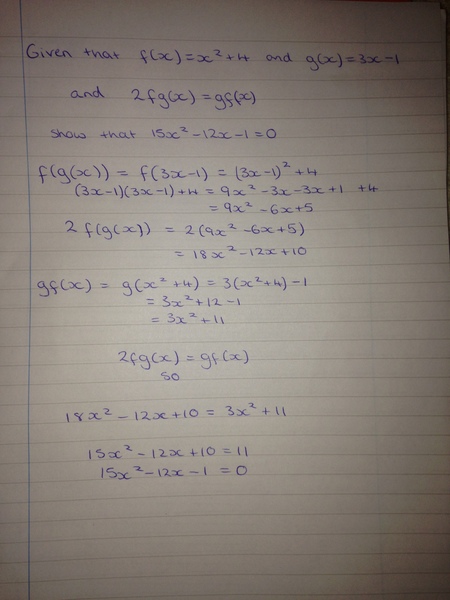 Given that f(x)=x²+4 and g(x)=3x-1
and 2fg(x)=gf(x)
show that 15x²-12x-1=0
f(g(x)) = f(3x-1) = (3x-1)²+4
(3x-1)(3x-1)+4 = 9x²-3x-3x+1 +4
= 9x²-6x+5
2f(g(x)) = 2(9x²-6x+5)
= 18x²-12x+10
gf(x) = g(x²+4) = 3(x²+4)-1
= 3x²+12-1
= 3x²+11
2fg(x)=gf(x)
so
18x²-12x+10 = 3x²+11
15x²-12x+10=11
15x²-12x-1 = 0